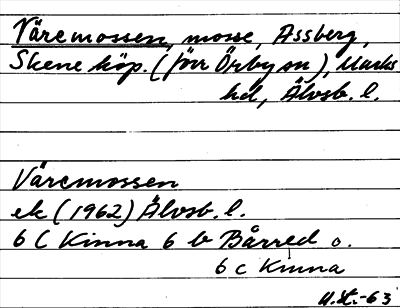 Väremossen, mosse, Assberg,
Skene köp. (förr Örby sn), Marks
hd, Älvsb. l.
Väremossen
ek (1962) Älvsb. l.
6 C Kinna 6 b Bårred o.
6 c Kinna
-63